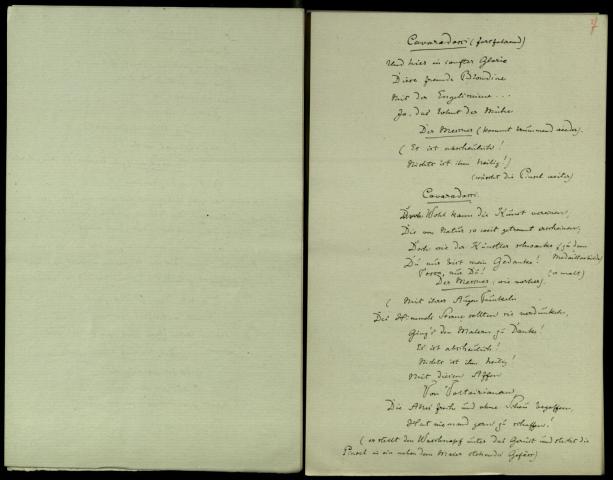 Cavaradossi (fortfahrend)
Und hier in sanfter Glorie
Diese fremde Blondine
Mit der Engelsmiene...
Ja, das lohnt der Mühe
Der Messner (kommt brummend wieder).
(Es ist abscheulich!
Nichts ist ihm heilig!)
(wäscht die Pinsel weiter)
Cavaradossi.
Wohl kann die Kunst vereinen,
Die von Natur so weit getrennt erscheinen,
Doch wie der Künstler schwanke (zu dem
Du nur bist mein Gedanke! Medaillonbilde)
Tosca, nur Du! (er malt)
Der Messner (wie vorher).
(Mit ihrer Augen Funkeln
Die Himmels Sterne sollten sie verdunkeln,
Ging's den Malern zu Danke!
Es ist abscheulich!
Nichts ist ihm heilig!
Mit diesen Affen
Von Voltairianern
Die Alles frech und ohne Scheu begaffen,
Hat niemand gern zu schaffen!
(er stellt den Waschnapf unter das Gerüst und steckt die
Pinsel in ein neben dem Maler stehendes Gefäss)